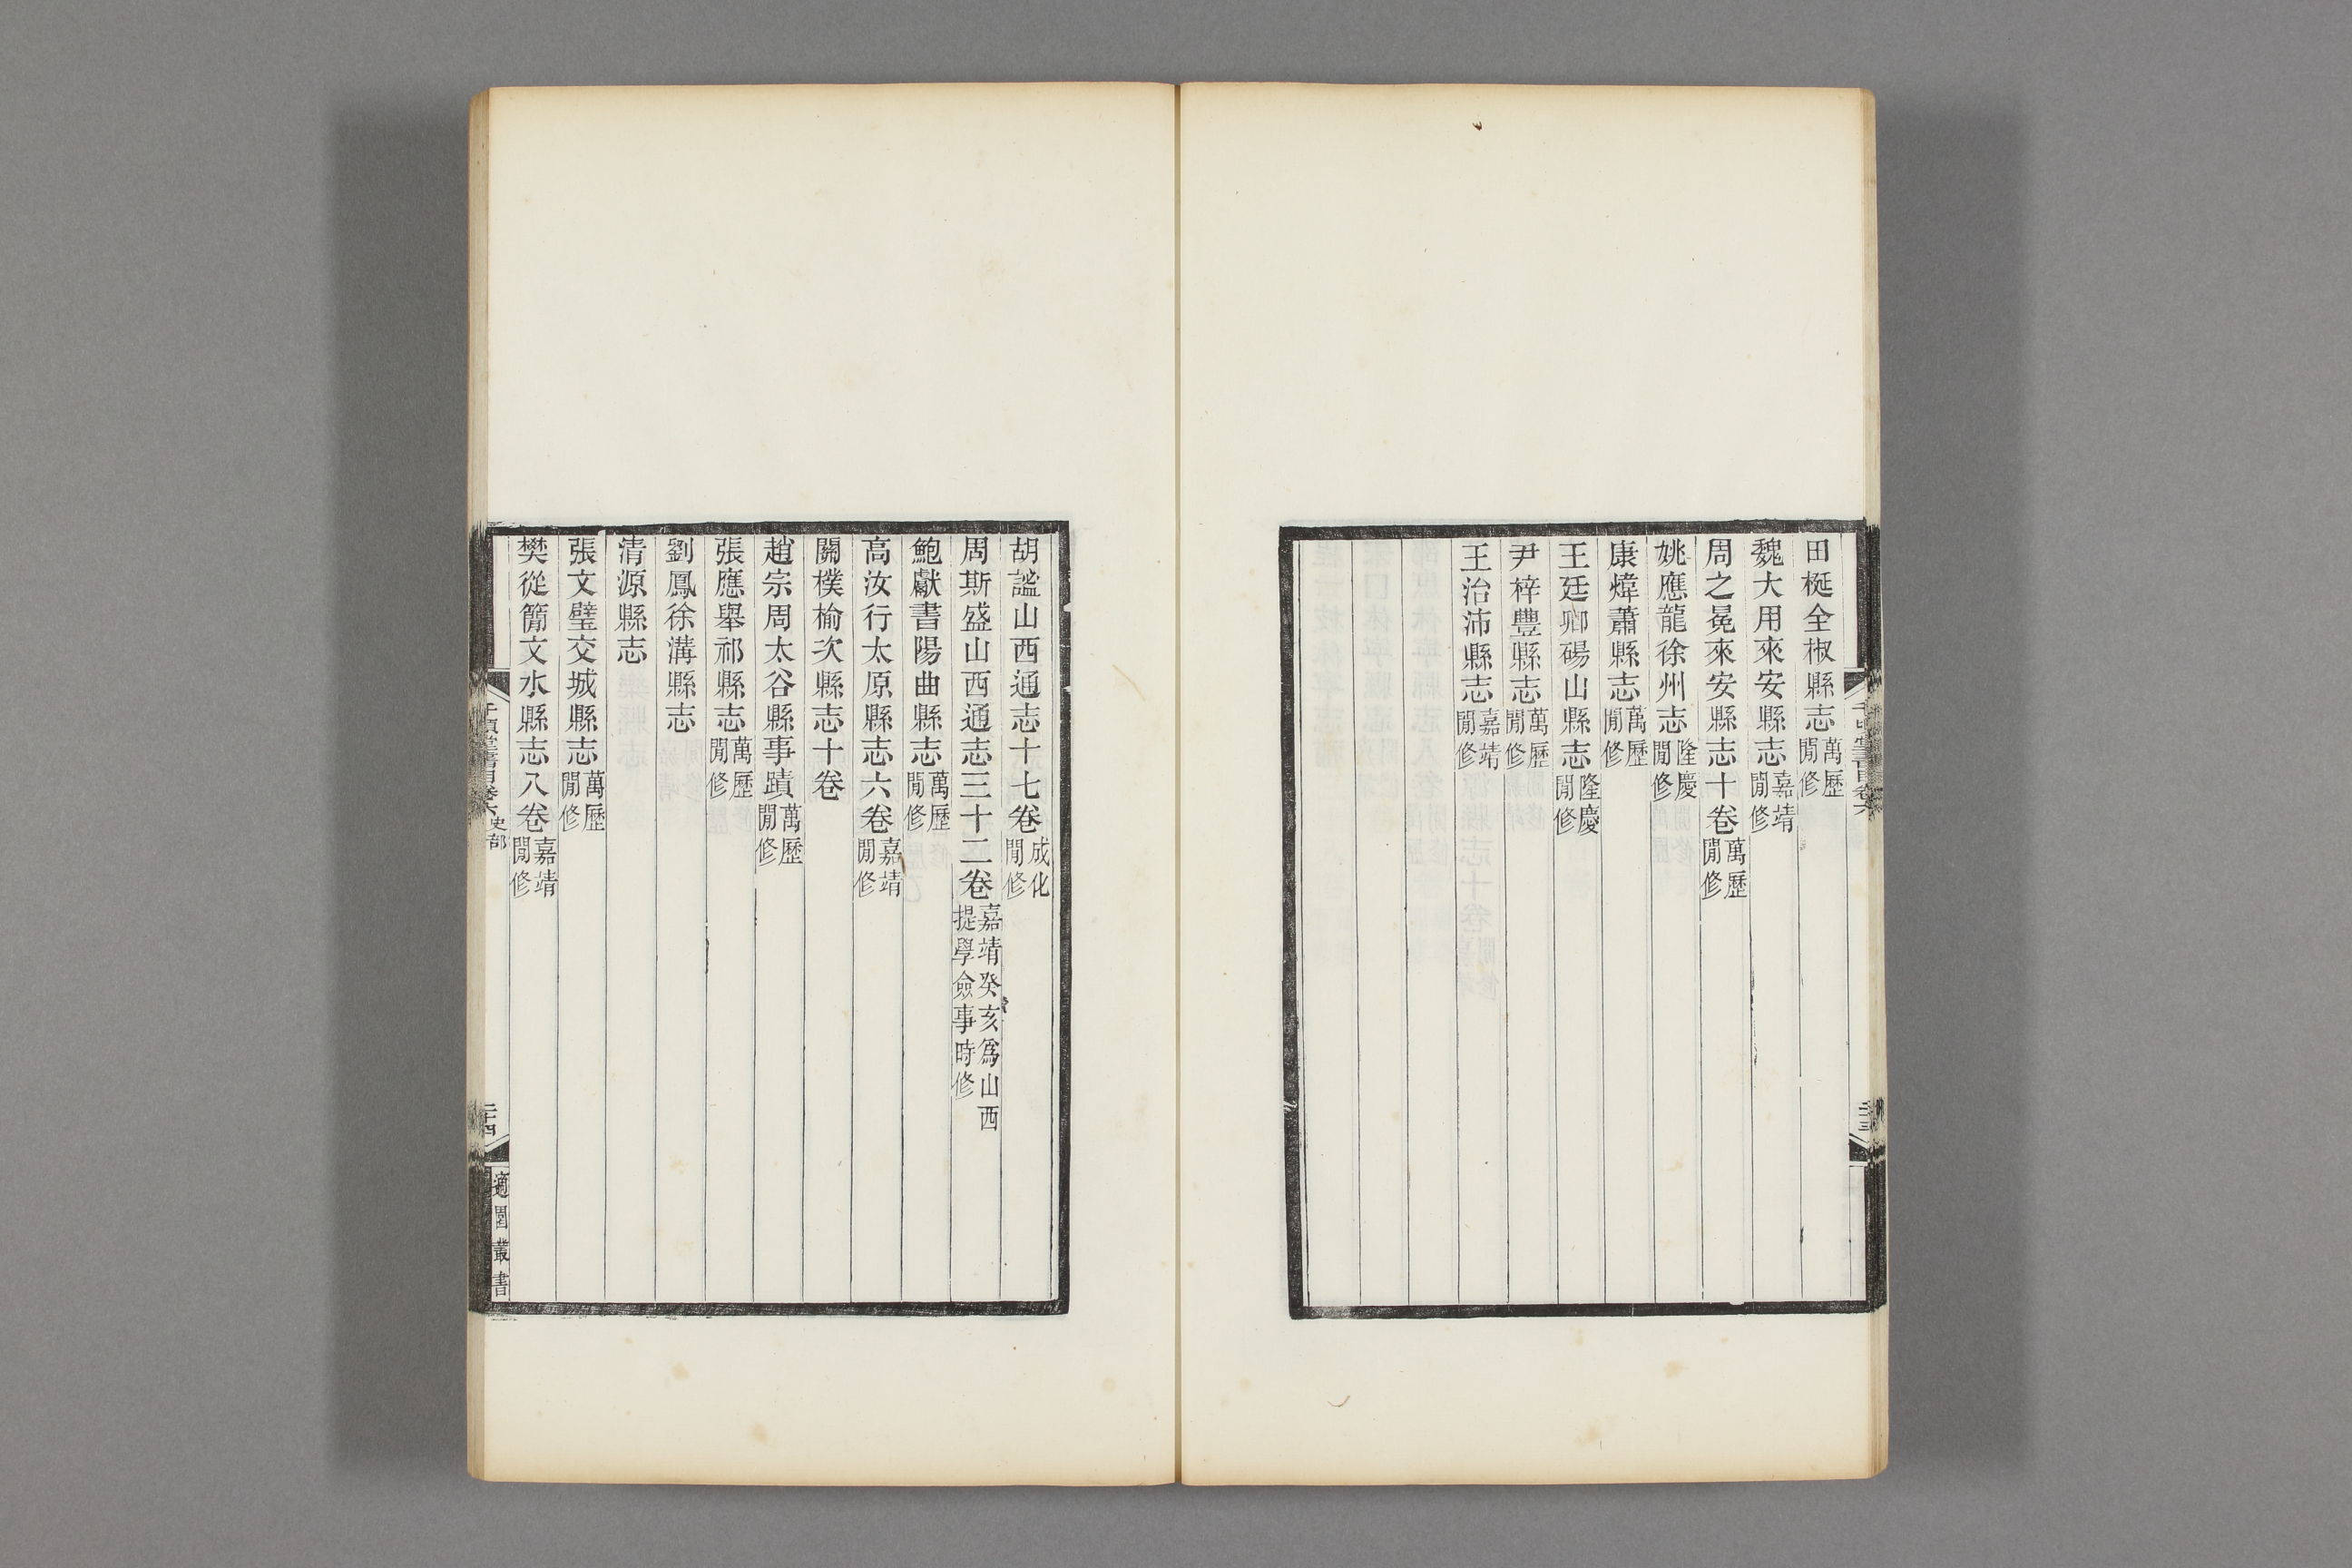 田梴全椒縣志萬歷閒修
魏大用來安縣志嘉靖閒修
周之冕來安縣志十卷萬歷閒修
姚應龍徐州志隆慶閒修
康煒蕭縣志萬歷閒修
王廷卿碭山縣志隆慶閒修
尹梓豐縣志萬歷閒修
王治沛縣志嘉靖閒修
胡謐山西通志十七卷成化閒修
周斯盛山西通志三十二卷嘉靖癸亥爲山西提學僉事時修
鮑獻書陽曲縣志萬歷閒修
高汝行太原縣志六卷嘉靖閒修
關樸榆次縣志十卷
趙宗周太谷縣事蹟萬歷閒修
張應舉祁縣志萬歷閒修
劉鳳徐溝縣志
清源縣志
張文璧交城縣志萬歷閒修
樊從簡文水縣志八卷嘉靖閒修
千頃堂書目卷六 史部
二十四
適園叢書